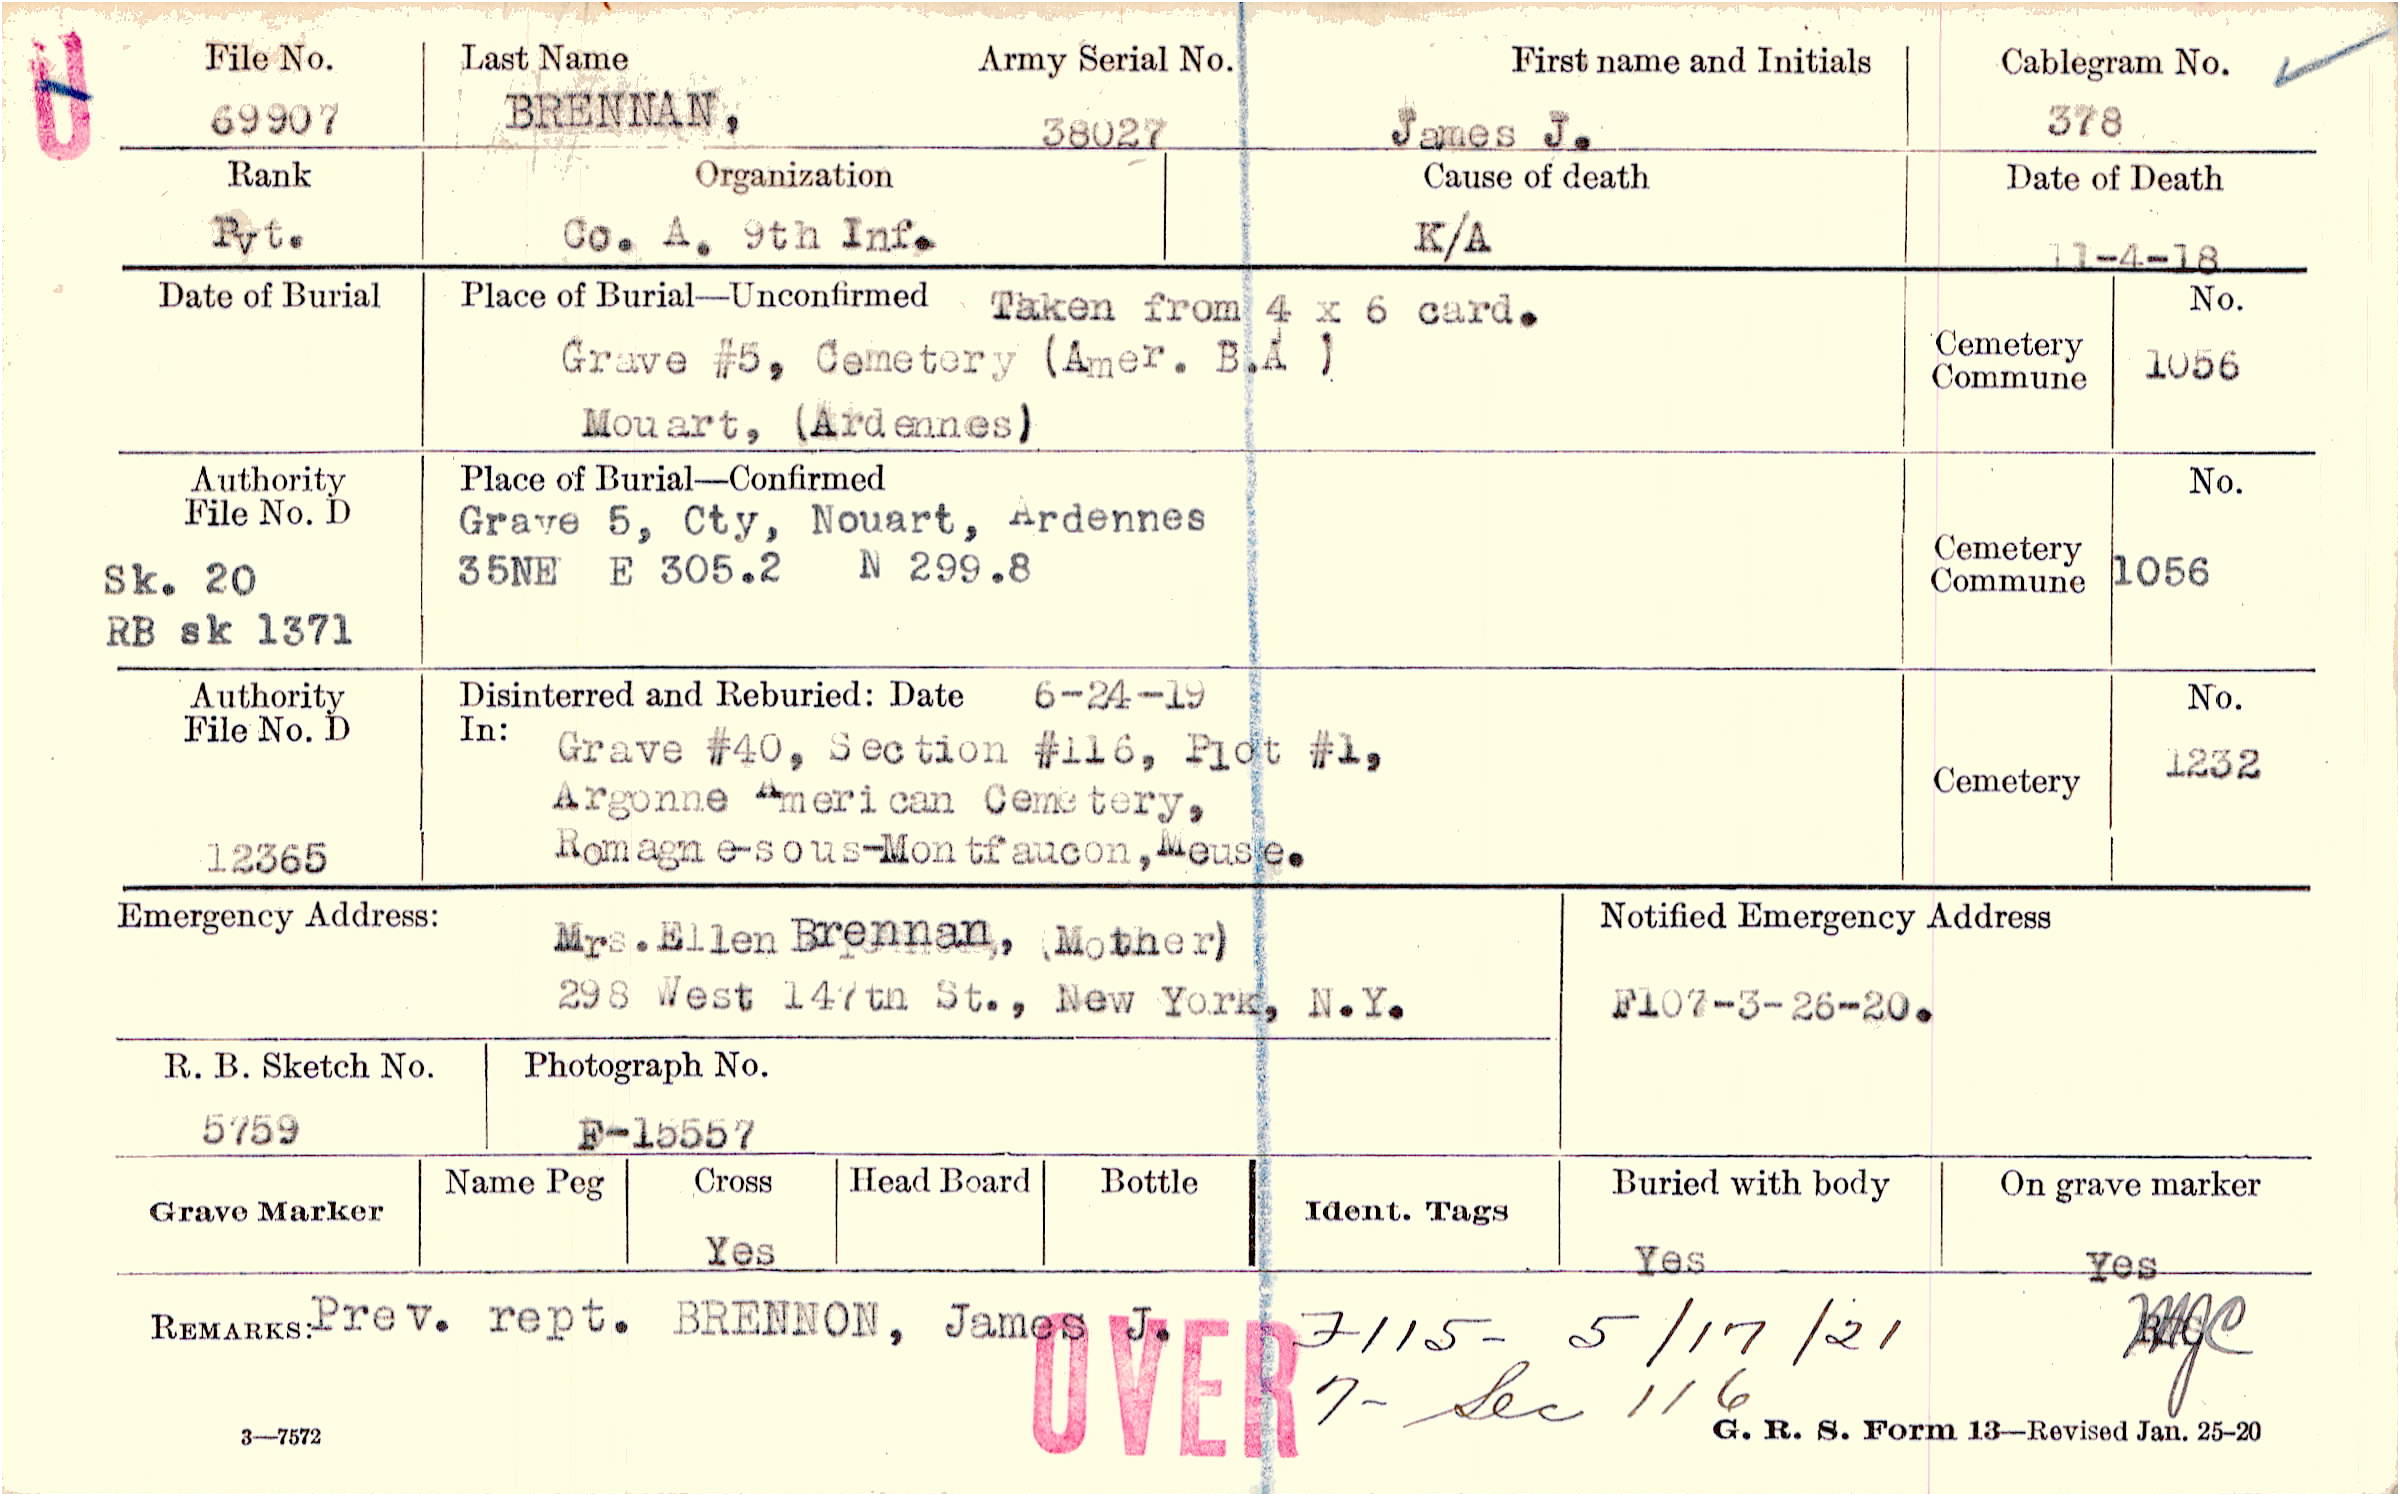 U
File No. Last Name Army Serial No. First name and Initials Cablegram No.
69907 BRENNAN, 38027 James J. 378
Rank Organization Cause of death Date of Death
Pvt. Co. A. 9th Inf. K/A 11-4-18
Date of Burial Place of Burial—Unconfirmed Taken from 4 x 6 card. No.
Grave #5, Cemetery (Amer. B.A ) Cemetery Commune 1056
Mouart, (Ardennes)
Authority File No. D Place of Burial—Confirmed No.
Grave 5, Cty, Nouart, Ardennes
Sk. 20 35NE E 305.2 N 299.8 Cemetery Commune 1056
RB sk 1371
Authority File No. D Disinterred and Reburied: Date 6-24-19 No.
In: Grave #40, Section #116, Plot #1, 1232
Argonne American Cemetery, Cemetery
12365 Romagne-sous-Montfaucon, Meuse.
Emergency Address: Mrs. Ellen Brennan, (Mother) Notified Emergency Address
298 West 147th St., New York, N.Y. F107-3-26-20.
R. B. Sketch No. Photograph No.
5759 F-15557
Grave Marker Name Peg Cross Head Board Bottle Ident. Tags Buried with body On grave marker
Yes Yes Yes
REMARKS: Prev. rept. BRENNON, James J. F115- 5/17/21
OVER 7- Sec 116
3—7572 G. R. S. Form 13—Revised Jan. 25-20